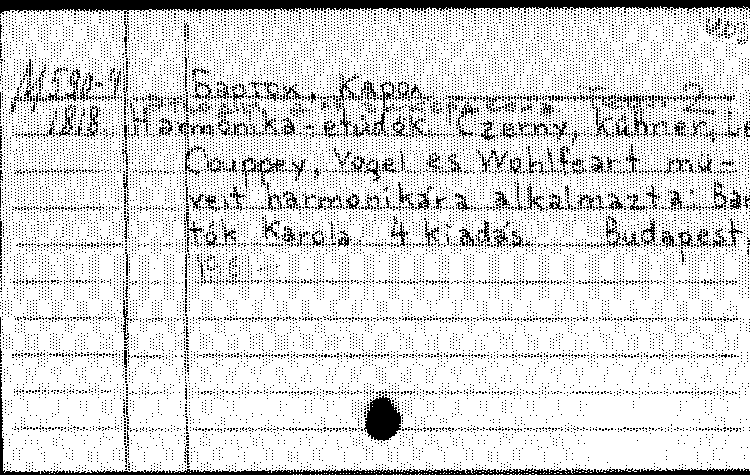 М590-4 Барток, Карол
1818. Harmonika-etüdök. Czerny, Kühner, Le
Couppey, Vogel és Wohlfeart mü-
veit harmonikára alkalmazta: Bar
tók Karola. 4 kiadás. Budapest,